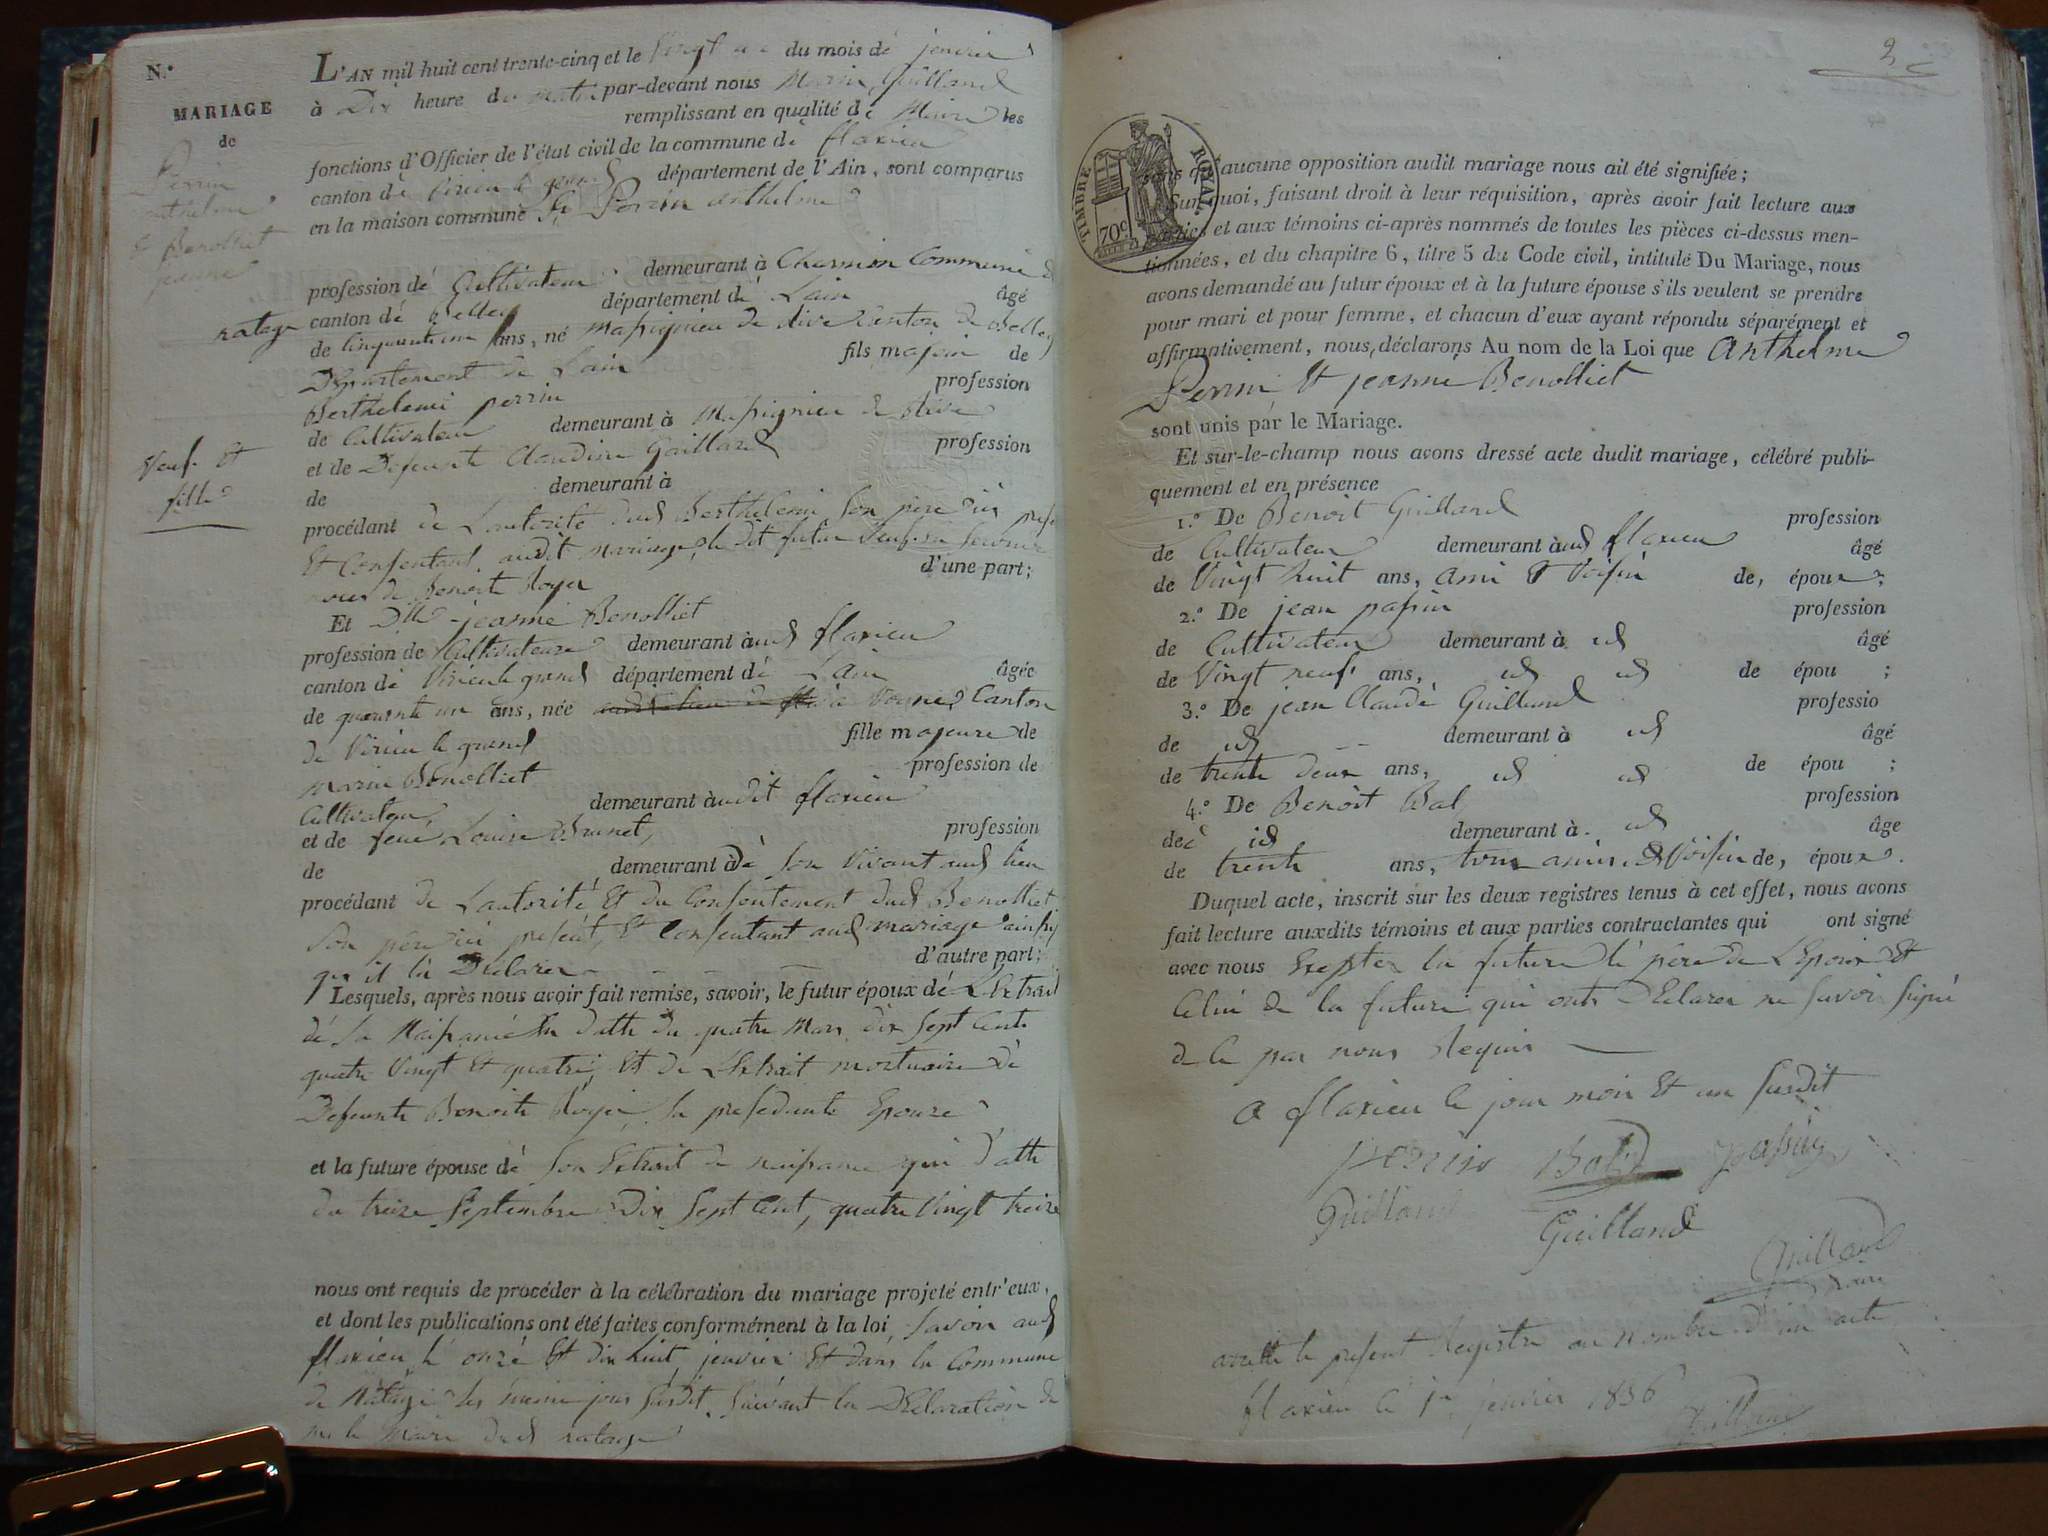 N.°
MARIAGE
de
Perrin
anthelme
& Benolliet
jeanne
natage
Veuf. Et
fille
L'AN mil huit cent trente-cinq et le Vingt du mois de jenvier
à Dix heure du matin par-devant nous Marin Guilland
remplissant en qualité de Maire les
fonctions d'Officier de l'état civil de la commune de flaxieu
canton de Virieu le grand département de l'Ain, sont comparus
en la maison commune Sr Perrin Anthelme
profession de Cultivateur demeurant à Charnin Commune
canton de Belley département de Lain âgé
de Cinquante un ans, né Massignieu de Rive Canton de Belley
Département de Lain fils majeur de
Berthelemi perrin profession
de Cultivateur demeurant à Massignieu de Rive
et de Defeunte Claudine Gaillard profession
de demeurant à
procédant de Lautorité dud Berthelemi Son père ici
Et Consentant audit mariage, le dit futur Veuf en
noces de Benoite Royer d'une part;
Et Dlle jeanne Benolliet
profession de Cultivateure demeurant à aud flaxieu
canton de Virieu le grand département de Lain âgée
de quarante un ans, née à Vognes Canton
de Virieu le grand fille majeure de
Marin Benolliet profession de
Cultivateur, demeurant audit flaxieu
et de feue Louise Brunet, profession
de demeurant à de Son Vivant aud lieu
procédant de Lautorité Et du Consentement dud Benolliet
Son père ici present, Et Consentant aud mariage ainsi
qu il la Déclarer d'autre part;
Lesquels, après nous avoir fait remise, savoir, le futur époux de LExtrait
de Sa Naissance En datte du quatre Mars dix Sept Cents
quatre Vingt Et quatre, Et de LExtrait mortuaire de
Defeunte Benoite Royer, Sa presedente Epouse
et la future épouse de Son Extrait de naissance qui datte
du treize Septembre Dix Sept Cent, quatre Vingt treize
nous ont requis de procéder à la célébration du mariage projeté entr'eux,
et dont les publications ont été faites conformément à la loi, Savoir aud
flaxieu le onze Et dix huit jenvier Et dans la Commune
de Natage les même jours Susdit, Suivant la Déclaration de
mr le Maire dud natage
2
TIMBRE ROYAL
70c
sans qu'aucune opposition audit mariage nous ait été signifiée;
Sur quoi, faisant droit à leur réquisition, après avoir fait lecture aux
parties et aux témoins ci-après nommés de toutes les pièces ci-dessus men-
tionnées, et du chapitre 6, titre 5 du Code civil, intitulé Du Mariage, nous
avons demandé au futur époux et à la future épouse s'ils veulent se prendre
pour mari et pour femme, et chacun d'eux ayant répondu séparément et
affirmativement, nous déclarons Au nom de la Loi que Anthelme
Perrin Et jeanne Benolliet
sont unis par le Mariage.
Et sur-le-champ nous avons dressé acte dudit mariage, célébré publi-
quement et en présence
1.° De Benoit Guilland profession
de Cultivateur demeurant à aud flaxieu âgé
de Vingt huit ans, ami & Voisin de, époux;
2.° De jean passin profession
de Cultivateur demeurant à id âgé
de Vingt neuf ans, id id de épou ;
3.° De jean Claude Guilland professio
de id demeurant à id âgé
de trente deux ans, id id de épou ;
4.° De Benoit Bal profession
de id demeurant à id âge
de trente ans, tous amis & Voisin de, époux.
Duquel acte, inscrit sur les deux registres tenus à cet effet, nous avons
fait lecture auxdits témoins et aux parties contractantes qui ont signé
avec nous Excepter la future le père de LEpoux Et
Celui de la future qui ont Déclarer ne Savoir Signé
de ce par nous Requis
a flaxieu le jour mois Et an Susdit
Perrin Bal
Guilland Guilland
Guilland
Maire
arrêté le présent Registre au nombre d'un acte
flaxieu le 1er jenvier 1836
Guilland